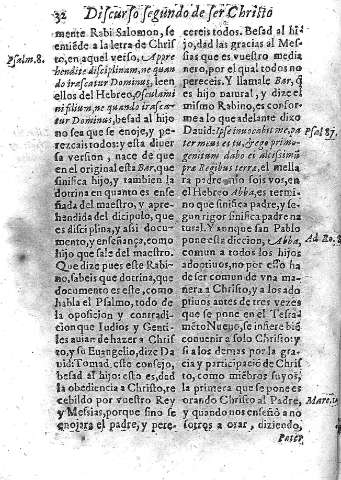 32 Discurso segundo de ser Christo
mente Rabi Salomon, se
entiẽde a la letra de Chris
to, en aquel verso, Appre
hendite disciplinam, ne quan
do irascatur Dominus, leen
ellos del Hebreo, Osculamini
ni filium, ne quando irasca-
tur Dominus, besad al hijo
no sea que se enoje, y pe-
rezcais todos: y esta diuer
sa version, nace de que
en el original esta Bar, que
sinifica hijo, y tambien la
dotrina en quanto es ense
ñada del maestro, y apre-
hendida del dicipulo, que
es disciplina, y assi docu-
mento, y enseñança, como
hijo que sale del maestro.
Que dize pues este Rabi-
no, sabeis que dotrina, que
documento es este, como
habla el Psalmo, todo de
la oposicion y contradi-
cion que Iudios y Genti-
les auian de hazer a Chris
to, y su Euangelio, dize Da
uid: Tomad este consejo,
besad al hijo: esto es, dad
la obediencia a Christo, re-
cebildo por vuestro Rey
y Messias, porque sino se
enojara el padre, y pere-
Psalm. 8.
cereis todos. Besad al hi
jo, dad las gracias al Mes-
sias que es vuestro media
nero, por el qual todos no
pereceis. Y llamale Bar, q̃
es hijo natural, y dize el
mismo Rabino, es confor-
mea lo que adelante dixo
Dauid: Ipse inuocabit me, pa
ter meus es tu, & ego primo-
genitum dabo et altissimũ
præ Regibus terræ, el mella
rà padre mio sois vos, en
el Hebreo Abba, es termi-
no que sinifica padre, y se-
gun rigor sinifica padre na
tural. Y aunque san Pablo
pone esta diccion, Abba,
comun a todos los hijos
adoptiuos, no por esso ha
de ser comun de vna ma-
nera a Christo, y a los ado
ptiuos antes de tres vezes
que se pone en el Testa-
mẽto Nueuo, se infiere biẽ
conuenir a solo Christo: y
si a los demas por la gra-
cia y participacio de Chris
to, como miẽbros suyos,
la primera que se pone es
orando Christo al Padre,
y quando nos enseñò a no
sotros a orar, diziendo,
Pater
Psal 87.
Ad Ro. 8
Marc.